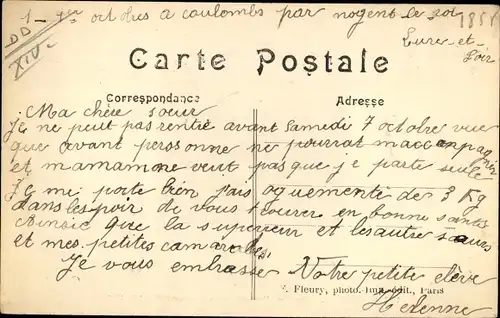 1 octobre a coulombs par nogent le roi
Eure-et-
Loir
Carte Postale
Correspondance
Adresse
Ma chère soeur
Je ne peut pas rentré avant Samedi 7 octobre vue
que avant personne ne pourrat maccanpagner
et mamamone veut pas que je parte seule
Je me porte bien jais oguementé de 3 Kg
dans lespoir de vous trouver en bonne santé
Ainsie que la superieur et lesautre sœurs
et mes petites camarades
Je vous embrasse Votre petite elève
E. Fleury, photo.-imp.-édit., Paris
Helenne